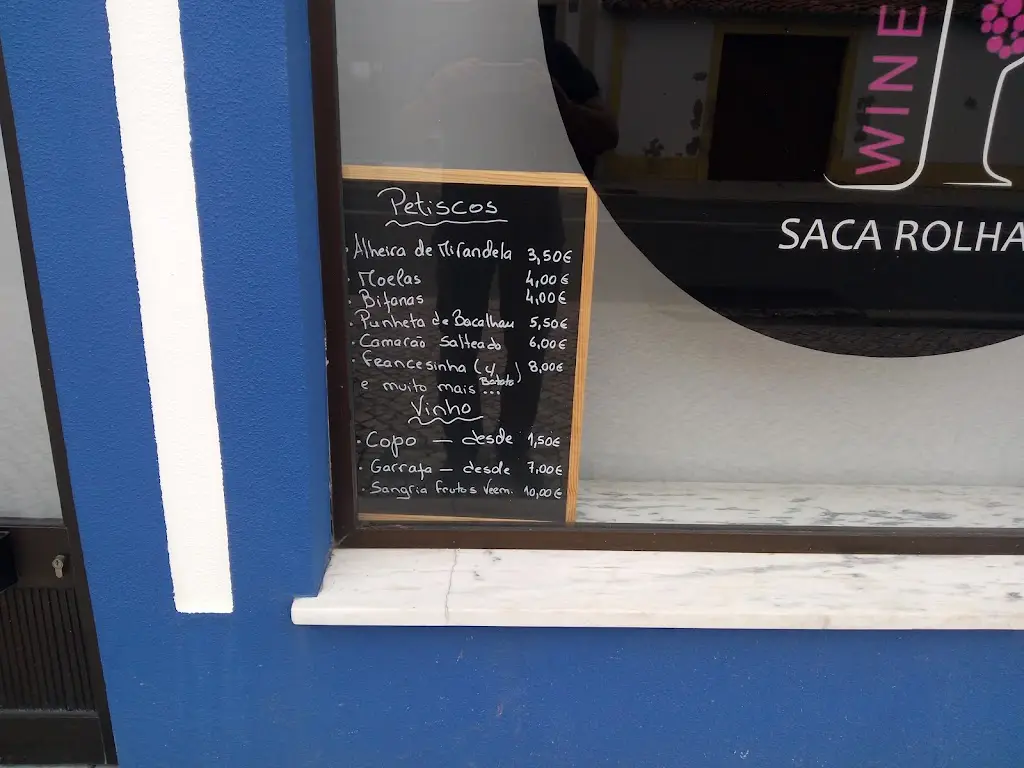 Petiscos
· Alheira de Mirandela 3,50€
· Moelas 4,00€
· Bifanas 4,00€
· Punheta de Bacalhau 5,50€
· Camarão Salteado 6,00€
· Francesinha (c/ Batata) 8,00€
e muito mais ...
Vinho
· Copo — desde 1,50€
· Garrafa — desde 7,00€
· Sangria Frutos Verm. 10,00€
WINE
SACA ROLHA